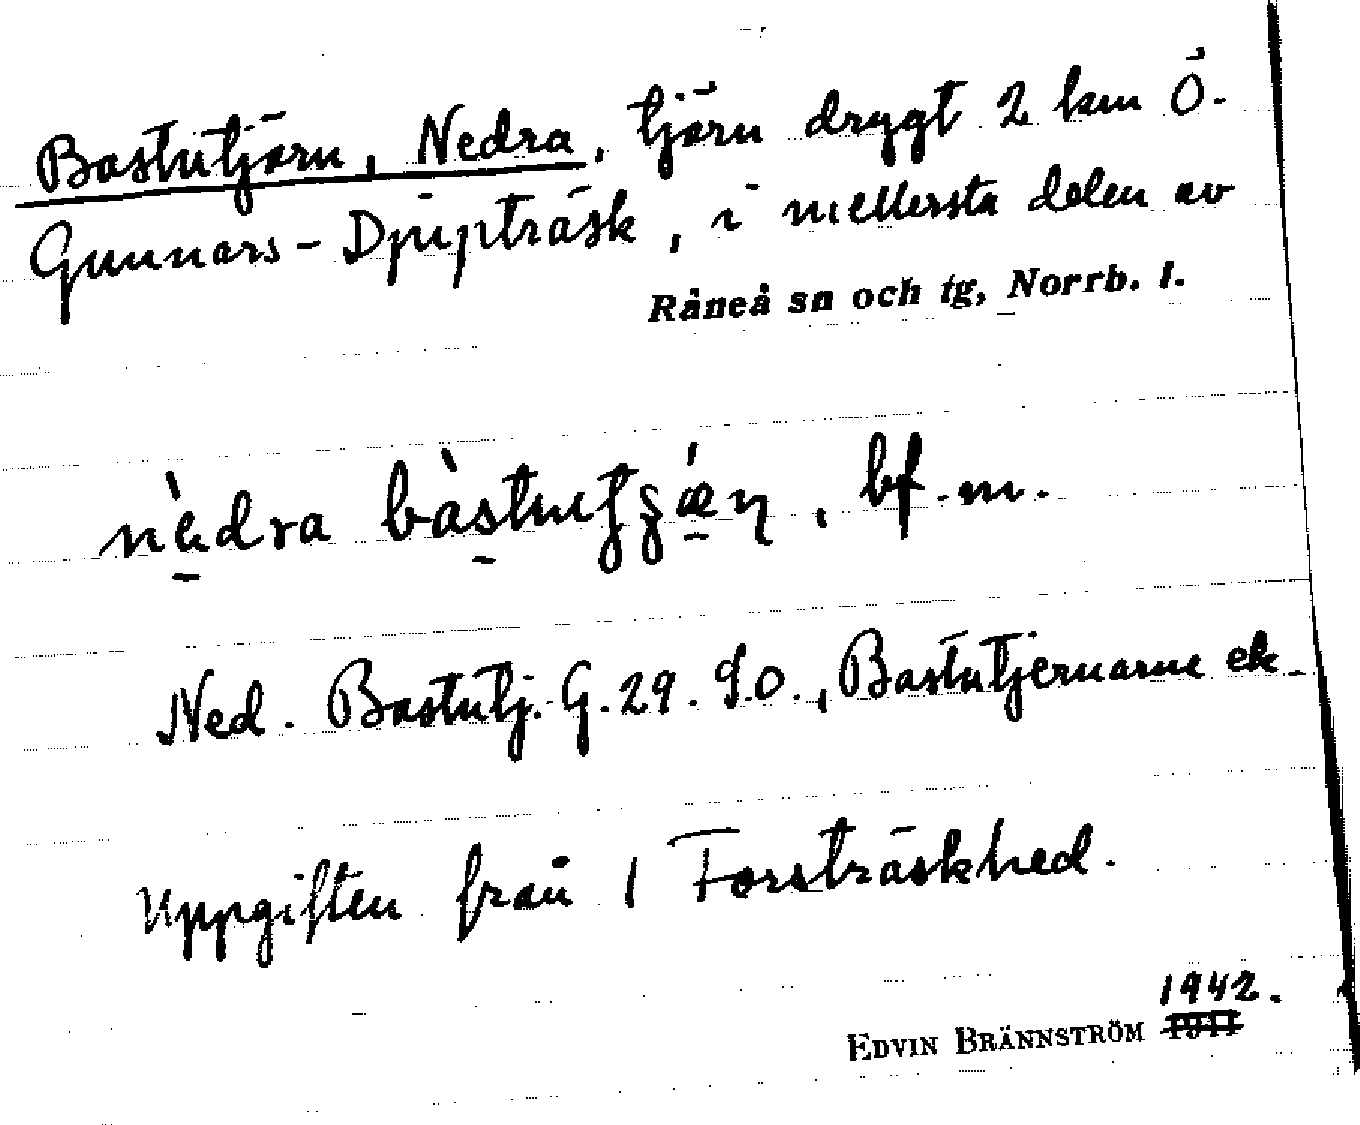 Bastutjärn, Nedra, tjärn drygt 2 km Ö.
Gunnars-Djupträsk, i mellersta delen av
Råneå sn och tg, Norrb. l.
nèdra , bf. m.
Ned. Bastutj. G. 29. , Bastutjernarne ek.
Uppgiften från 1 Forsträskhed.
1942.
EDVIN BRÄNNSTRÖM 1941